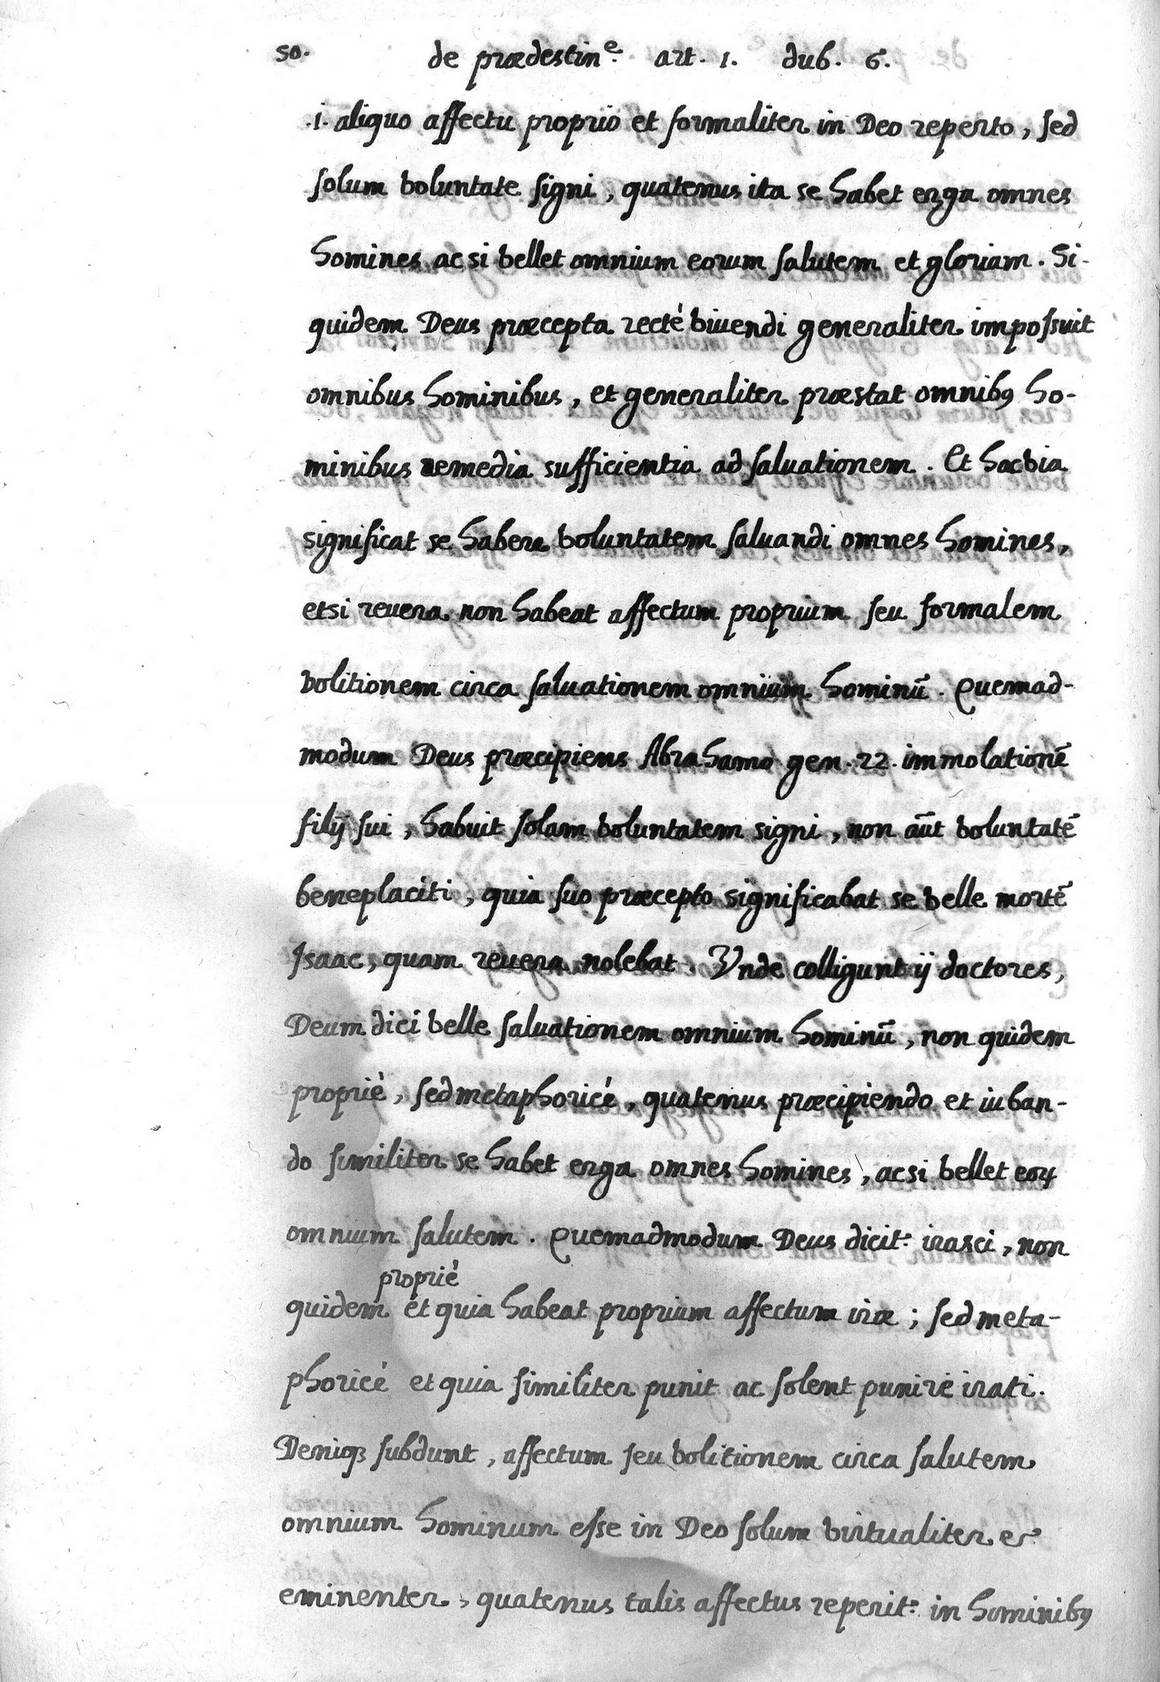 50. de prædestin.e art. 1. dub. 6.
.i. aliquo affectu proprio et formaliter in Deo reperto, sed
solum voluntate signi, quatenus ita se habet erga omnes
homines ac si vellet omnium eorum salutem et gloriam. Si-
quidem Deus præcepta rectè viuendi generaliter impossuit
omnibus hominibus, et generaliter præstat omnibꝯ ho-
minibus remedia sufficientia ad saluationem. Et hac via
significat se habere voluntatem saluandi omnes homines,
etsi reuera non habeat affectum proprium seu formalem
volitionem circa saluationem omnium hominū. Quemad-
modum Deus præcipiens Abrahamo gen. 22. immolationē
filij sui, habuit solam voluntatem signi, non aūt voluntatē
beneplaciti, quia suo præcepto significabat se velle mortē
Isaac, quam reuera nolebat. Vnde colligunt ij doctores,
Deum dici velle saluationem omnium hominū, non quidem
propriè, sed metaphoricè, quatenus præcipiendo et iuban-
do similiter se habet erga omnes homines, ac si vellet eoꝝ
omnium salutem. Quemadmodum Deus dicit.r irasci, non
propriè
quidem et quia habeat proprium affectum iræ; sed meta-
phoricè et quia similiter punit ac solent punire irati.
Deniqꝫ subdunt, affectum seu volitionem circa salutem
omnium hominum esse in Deo solum virtualiter et
eminenter, quatenus talis affectus reperit.r in hominibꝯ